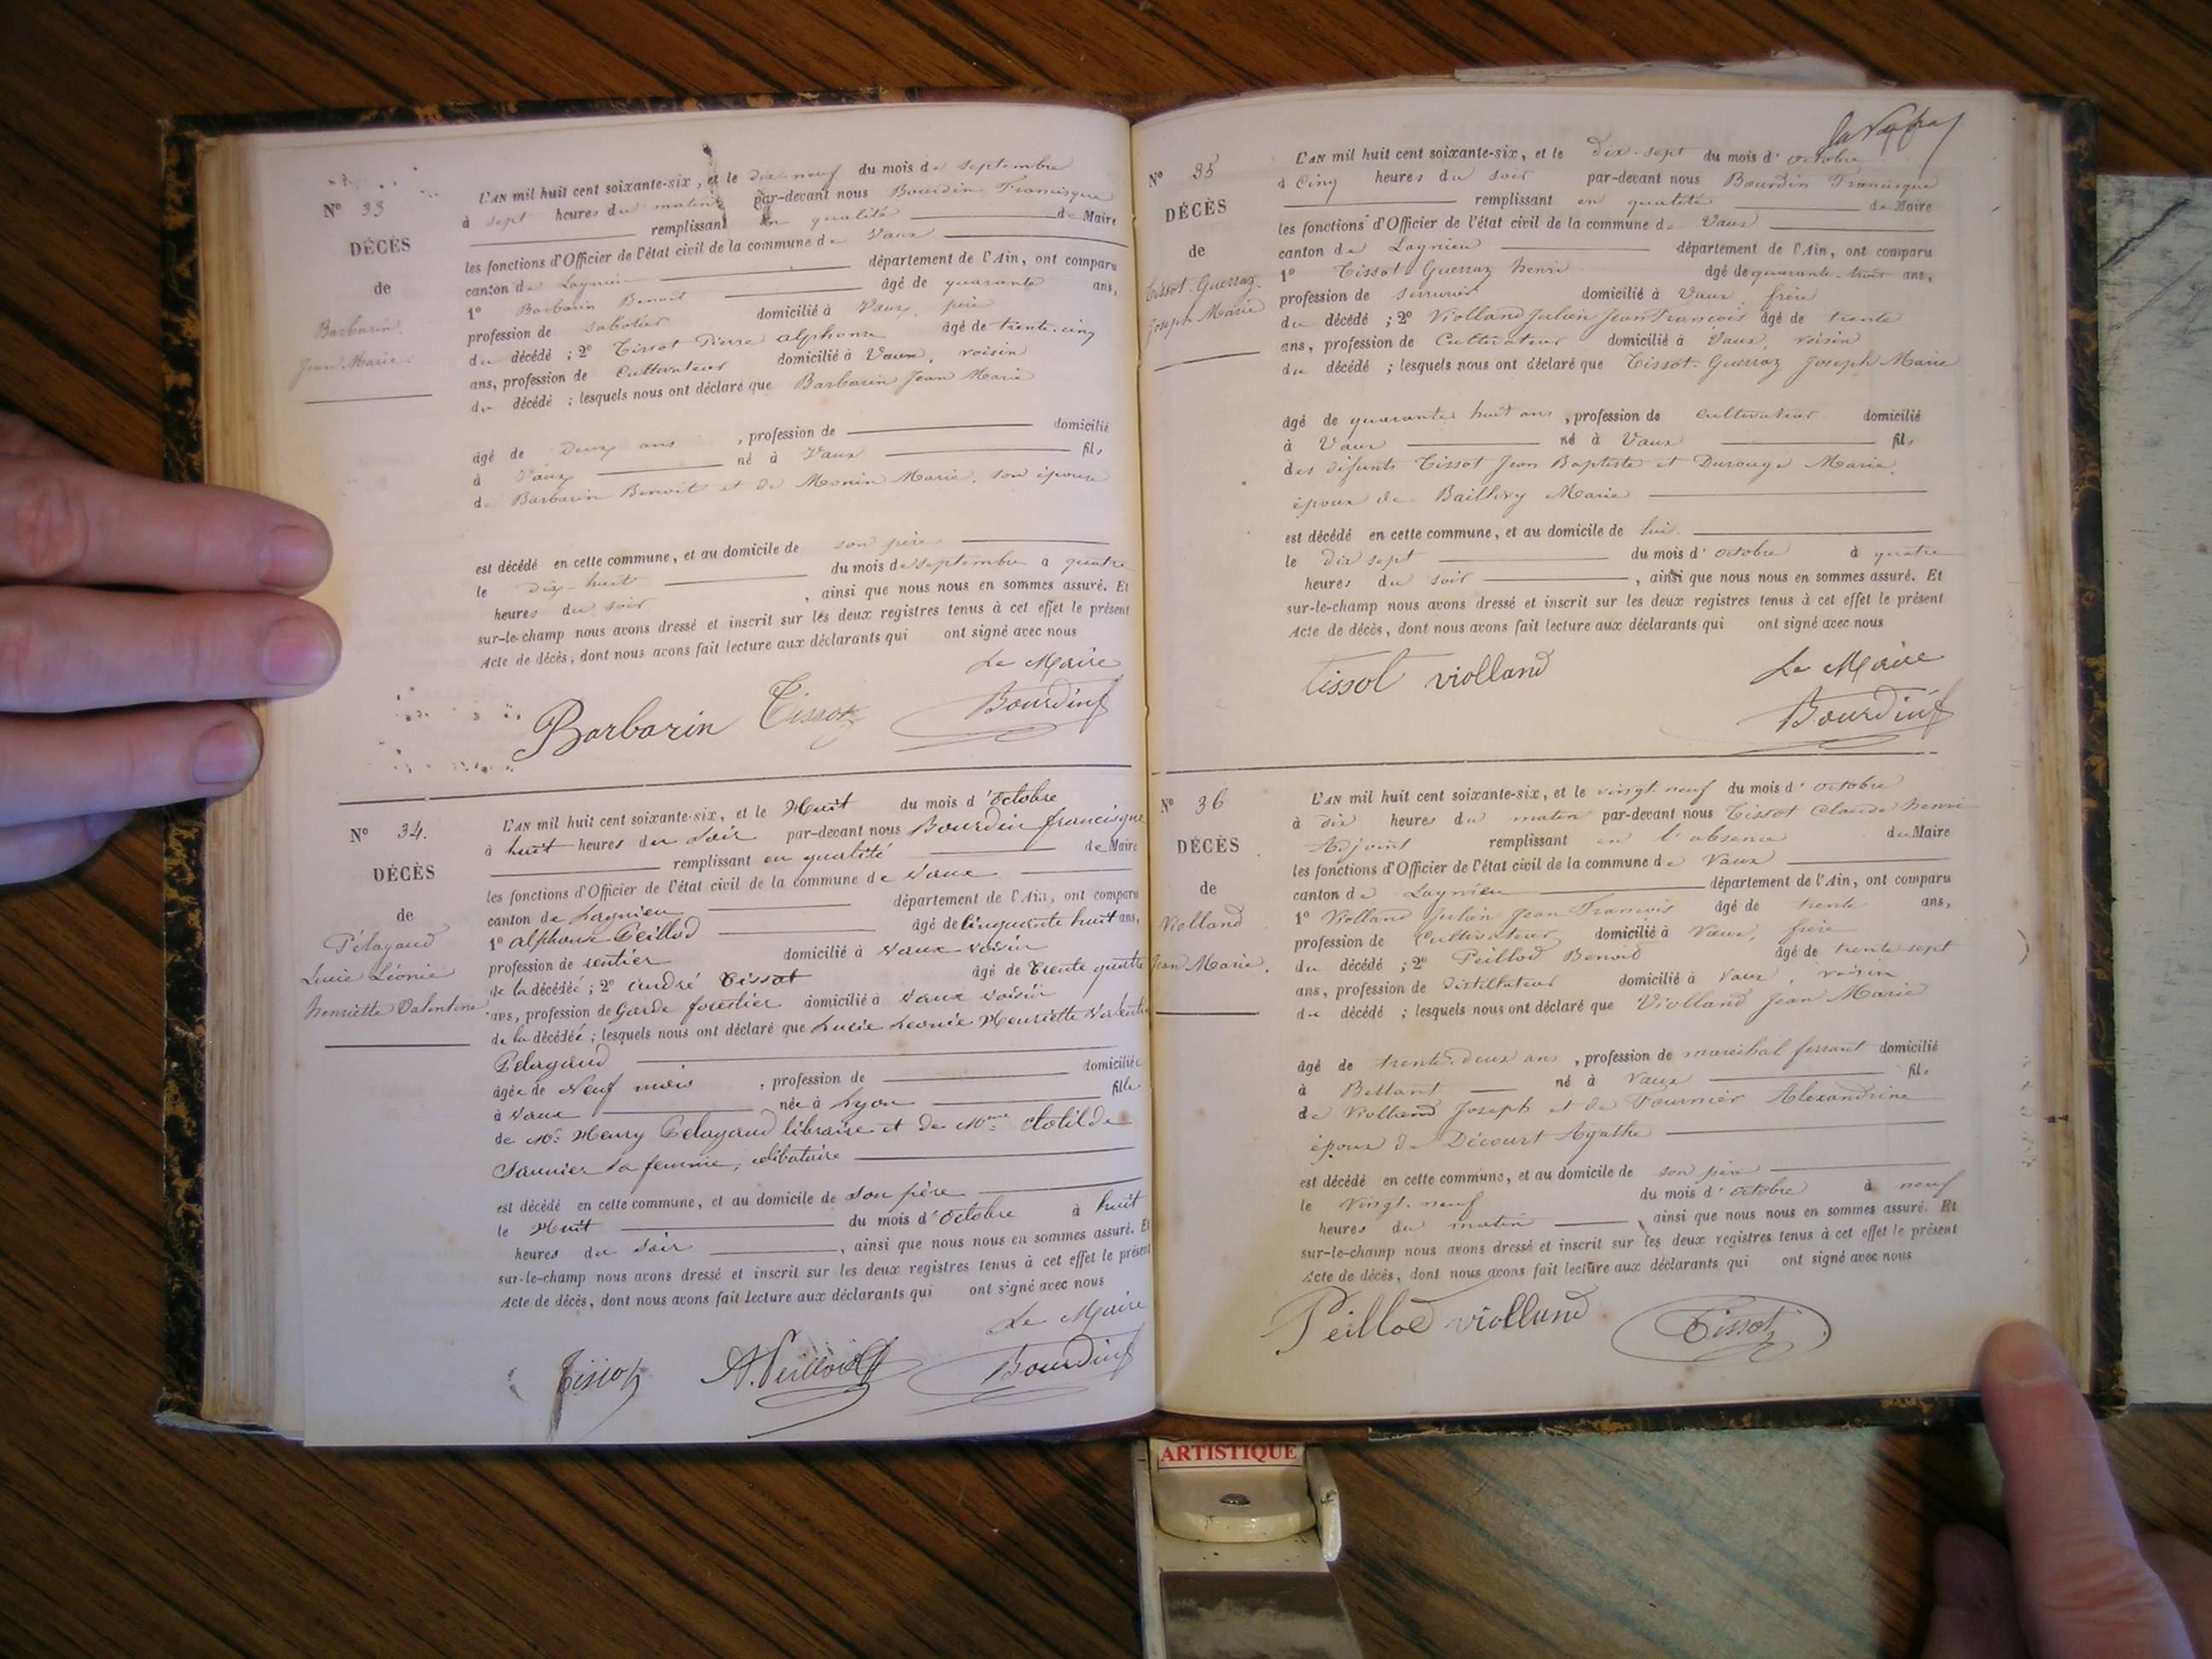 N° 33
DÉCÈS
de
Barbarin
Jean Marie
L'AN mil huit cent soixante-six, et le dix-neuf du mois de septembre
à sept heures du matin par-devant nous Bourdin Francisque
remplissant en qualité de Maire
les fonctions d'Officier de l'état civil de la commune de Vaux
canton de Lagnieu département de l'Ain, ont comparu
1° Barbarin Benoit âgé de quarante ans,
profession de sabotier domicilié à Vaux, père
du décédé ; 2° Tissot Pierre Alphonse âgé de trente-cinq
ans, profession de Cultivateur domicilié à Vaux, voisin
du décédé ; lesquels nous ont déclaré que Barbarin Jean Marie
âgé de deux ans , profession de domicilié
à Vaux né à Vaux fils
de Barbarin Benoit et de Monin Marie, son épouse
est décédé en cette commune, et au domicile de son père
le dix-huit du mois de septembre à quatre
heures du soir , ainsi que nous nous en sommes assuré. Et
sur-le-champ nous avons dressé et inscrit sur les deux registres tenus à cet effet le présent
Acte de décès, dont nous avons fait lecture aux déclarants qui ont signé avec nous
Le Maire
Barbarin Tissot Bourdin f
N° 34.
DÉCÈS
de
Pélagaud
Lucie Léonie
henriette Valentine
L'AN mil huit cent soixante-six, et le Huit du mois d'Octobre
à huit heures du Soir par-devant nous Bourdin francisque
remplissant en qualité de Maire
les fonctions d'Officier de l'état civil de la commune de Vaux
canton de Lagnieu département de l'Ain, ont comparu
1° Alphonse Peillod âgé de Cinquante huit ans,
profession de rentier domicilié à Vaux voisin
de la décédée ; 2° André Tissot âgé de Trente quatre
ans, profession de Garde forestier domicilié à Vaux voisin
de la décédée ; lesquels nous ont déclaré que Lucie Leonie Henriette Valentine
Pelagaud
âgée de Neuf mois , profession de domiciliée
à Vaux née à Lyon fille
de Mr. Henry Pelagaud libraire et de Mme Clotilde
Saunier sa femme, célibataire
est décédé en cette commune, et au domicile de son père
le Huit du mois d'Octobre à huit
heures du Soir , ainsi que nous nous en sommes assuré. Et
sur-le-champ nous avons dressé et inscrit sur les deux registres tenus à cet effet le présent
Acte de décès, dont nous avons fait lecture aux déclarants qui ont signé avec nous
Le Maire
Tissot A. Peillod Bourdin f
N° 35
DÉCÈS
de
Tissot-Guerraz
Joseph Marie
L'AN mil huit cent soixante-six, et le Dix-sept du mois d'octobre
à Cinq heures du soir par-devant nous Bourdin Francisque
remplissant en qualité de Maire
les fonctions d'Officier de l'état civil de la commune de Vaux
canton de Lagnieu département de l'Ain, ont comparu
1° Tissot Guerraz henri âgé de quarante-trois ans,
profession de serrurier domicilié à Vaux, frère
du décédé ; 2° Violland Julien Jean François âgé de trente
ans, profession de Cultivateur domicilié à Vaux, voisin
du décédé ; lesquels nous ont déclaré que Tissot-Guerraz Joseph Marie
âgé de quarante huit ans , profession de cultivateur domicilié
à Vaux né à Vaux fils
des défunts Tissot Jean Baptiste et Durouge Marie.
époux de Baillivy Marie
est décédé en cette commune, et au domicile de lui.
le dix sept du mois d'octobre à quatre
heures du soir , ainsi que nous nous en sommes assuré. Et
sur-le-champ nous avons dressé et inscrit sur les deux registres tenus à cet effet le présent
Acte de décès, dont nous avons fait lecture aux déclarants qui ont signé avec nous
Tissot violland Le Maire
Bourdin f
N° 36
DÉCÈS
de
Violland
Jean Marie.
L'AN mil huit cent soixante-six, et le vingt-neuf du mois d'octobre
à dix heures du matin par-devant nous Tissot Claude henri
Adjoint remplissant en l'absence du Maire
les fonctions d'Officier de l'état civil de la commune de Vaux
canton de Lagnieu département de l'Ain, ont comparu
1° Violland Julien Jean François âgé de trente ans,
profession de Cultivateur domicilié à Vaux, frère
du décédé ; 2° Peillod Benoit âgé de trente sept
ans, profession de distillateur domicilié à Vaux, voisin
du décédé ; lesquels nous ont déclaré que Violland Jean Marie
âgé de trente-deux ans , profession de maréchal ferrant domicilié
à Bettant né à Vaux fils
de Violland Joseph et de Fournier Alexandrine
époux de Décourt Agathe
est décédé en cette commune, et au domicile de son père
le Vingt-neuf du mois d'octobre à neuf
heures du matin , ainsi que nous nous en sommes assuré. Et
sur-le-champ nous avons dressé et inscrit sur les deux registres tenus à cet effet le présent
Acte de décès, dont nous avons fait lecture aux déclarants qui ont signé avec nous
Peillod violland Tissot
ARTISTIQUE